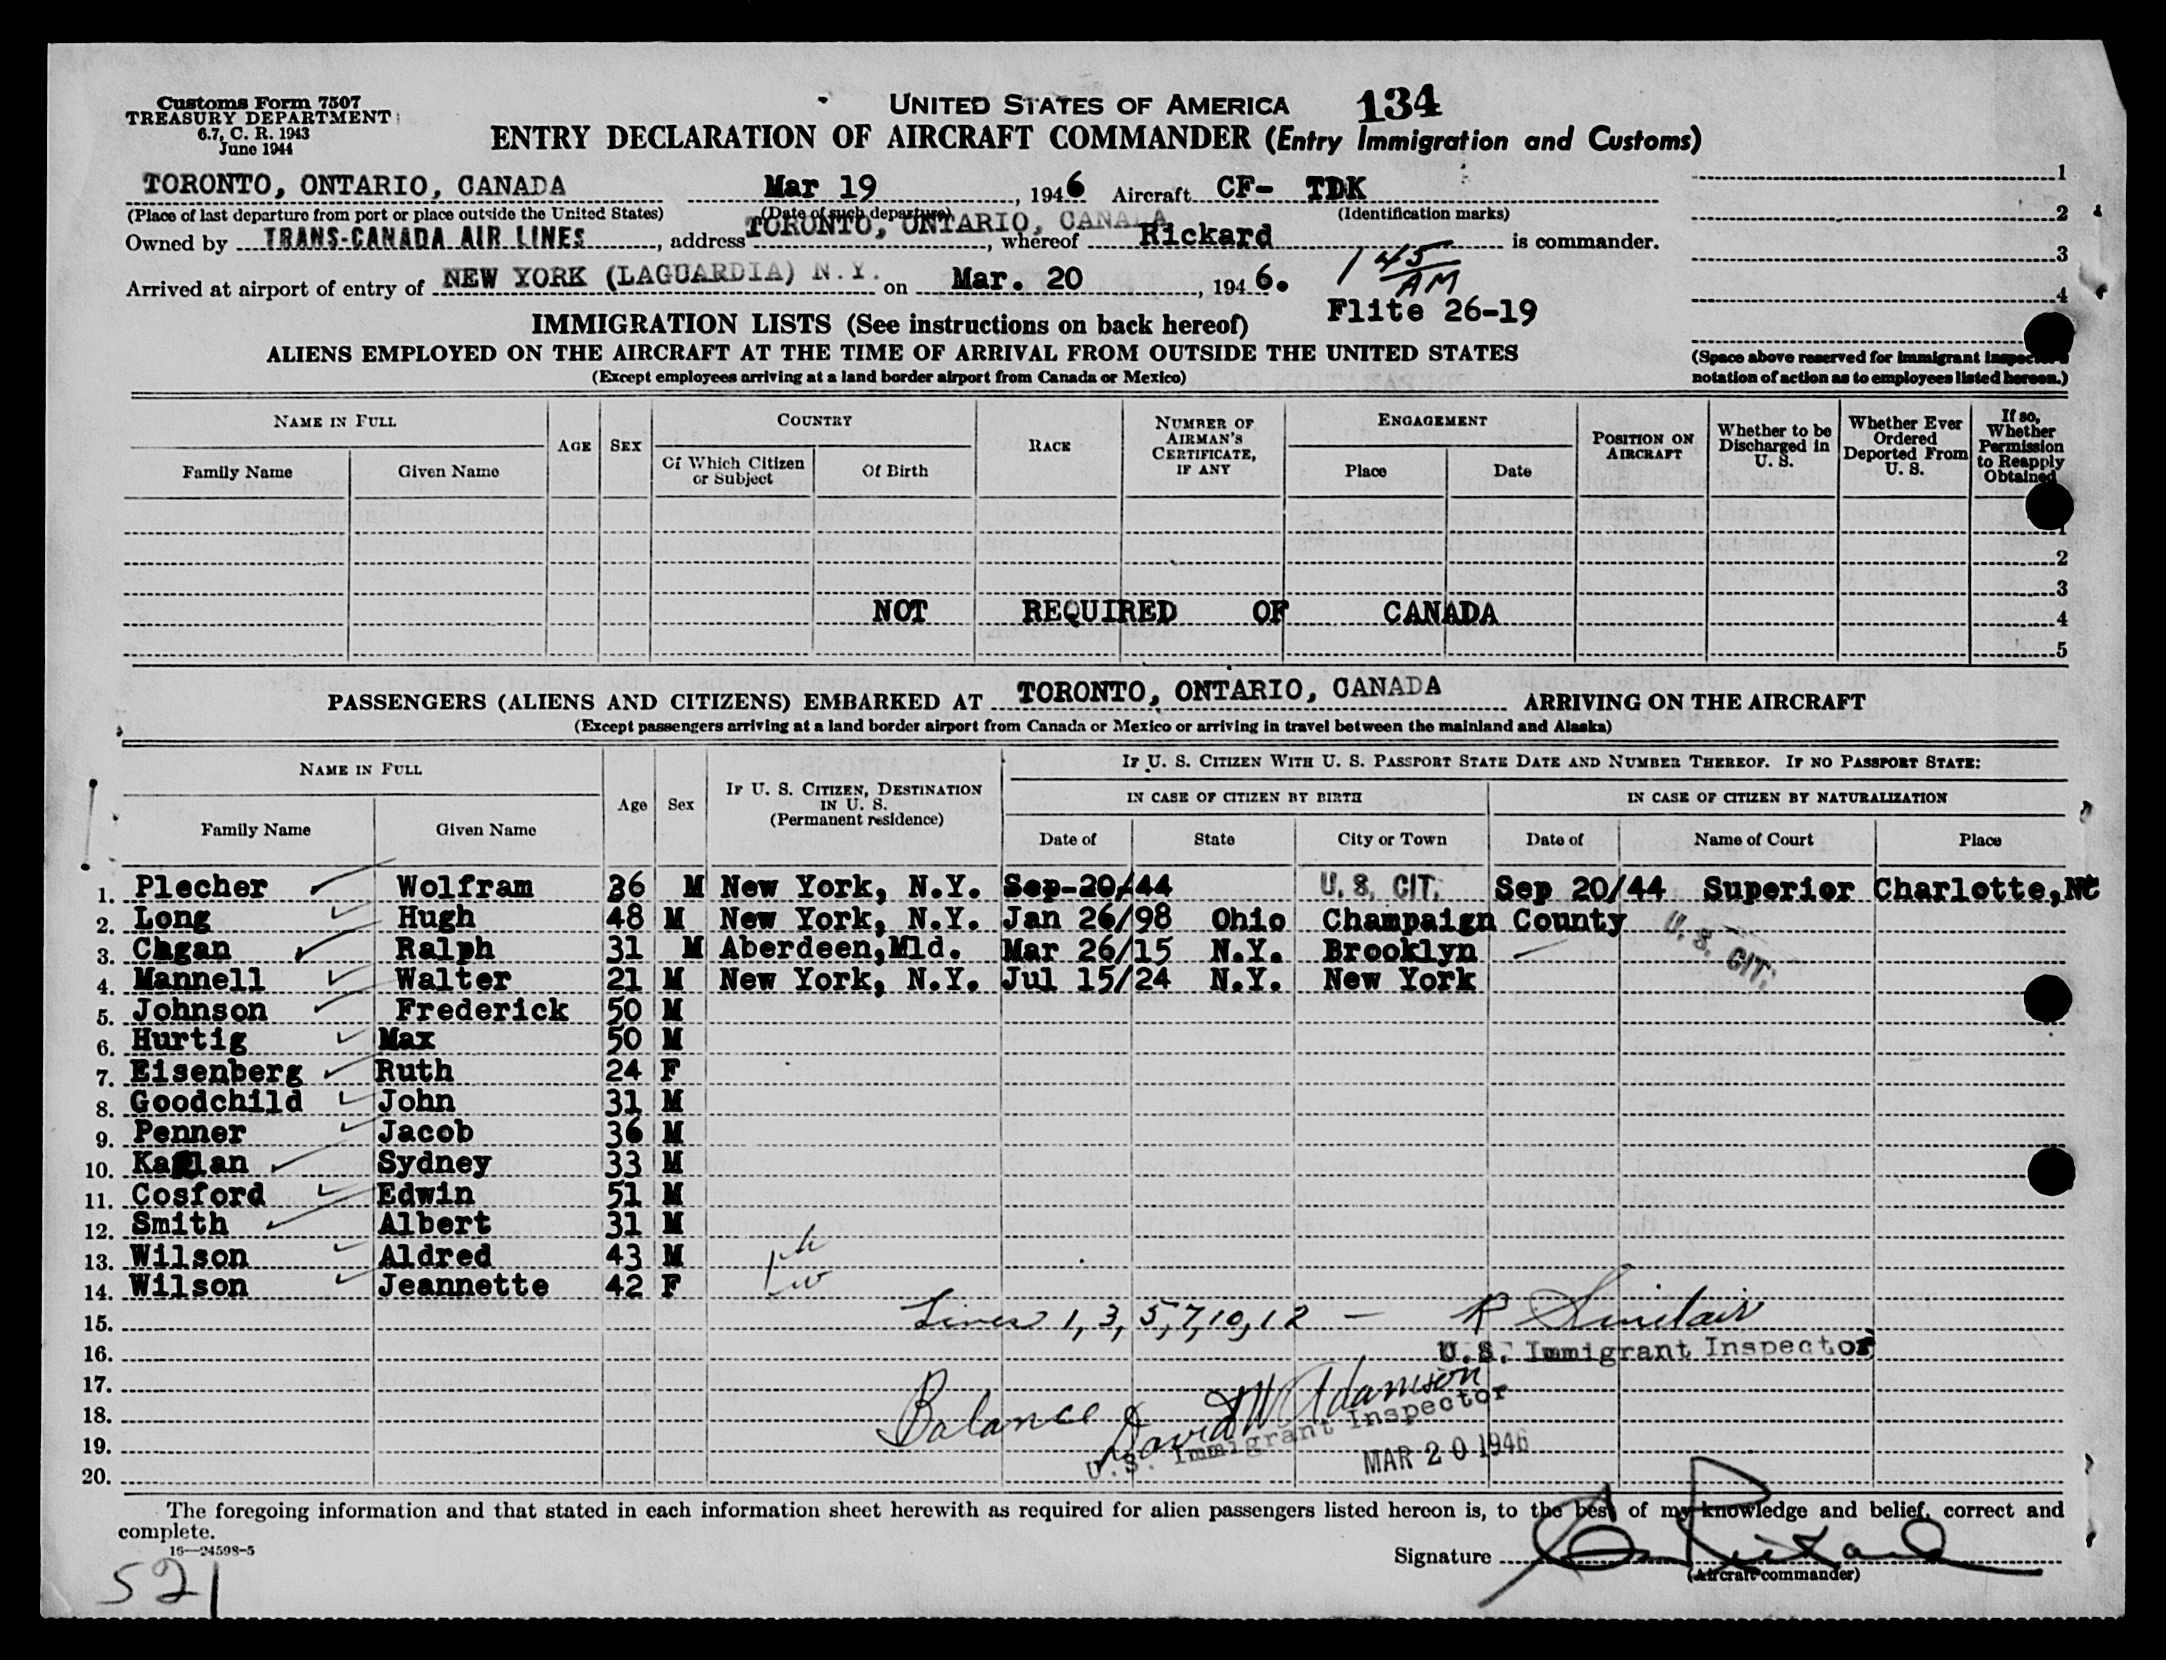 Customs Form 7507
TREASURY DEPARTMENT
6.7, C. R. 1943
June 1944
UNITED STATES OF AMERICA 134
ENTRY DECLARATION OF AIRCRAFT COMMANDER (Entry Immigration and Customs)
TORONTO, ONTARIO, CANADA Mar 19, 1946 Aircraft CF- TDK
(Place of last departure from port or place outside the United States) (Date of such departure) (Identification marks)
Owned by TRANS-CANADA AIR LINES, address TORONTO, ONTARIO, CANADA, whereof Rickard is commander.
Arrived at airport of entry of NEW YORK (LAGUARDIA) N.Y. on Mar. 20, 1946.
1 45 AM
Flite 26-19
1
2
3
4
(Space above reserved for immigrant inspector's
notation of action as to employees listed hereon.)
IMMIGRATION LISTS (See instructions on back hereof)
ALIENS EMPLOYED ON THE AIRCRAFT AT THE TIME OF ARRIVAL FROM OUTSIDE THE UNITED STATES
(Except employees arriving at a land border airport from Canada or Mexico)
NAME IN FULL
Family Name Given Name
AGE SEX
COUNTRY
Of Which Citizen or Subject Of Birth
RACE
NUMBER OF AIRMAN'S CERTIFICATE, IF ANY
ENGAGEMENT
Place Date
POSITION ON AIRCRAFT
Whether to be Discharged in U. S.
Whether Ever Ordered Deported From U. S.
If so, Whether Permission to Reapply Obtained
1
2
3
NOT REQUIRED OF CANADA 4
5
PASSENGERS (ALIENS AND CITIZENS) EMBARKED AT TORONTO, ONTARIO, CANADA ARRIVING ON THE AIRCRAFT
(Except passengers arriving at a land border airport from Canada or Mexico or arriving in travel between the mainland and Alaska)
NAME IN FULL
Family Name Given Name
Age Sex
IF U. S. CITIZEN, DESTINATION IN U. S. (Permanent residence)
IF U. S. CITIZEN WITH U. S. PASSPORT STATE DATE AND NUMBER THEREOF. IF NO PASSPORT STATE:
IN CASE OF CITIZEN BY BIRTH IN CASE OF CITIZEN BY NATURALIZATION
Date of State City or Town Date of Name of Court Place
1. Plecher Wolfram 36 M New York, N.Y. Sep-20/44 U. S. CIT. Sep 20/44 Superior Charlotte, NC
2. Long Hugh 48 M New York, N.Y. Jan 26/98 Ohio Champaign County
3. Cagan Ralph 31 M Aberdeen, Mld. Mar 26/15 N.Y. Brooklyn U. S. CIT.
4. Mannell Walter 21 M New York, N.Y. Jul 15/24 N.Y. New York
5. Johnson Frederick 50 M
6. Hurtig Max 50 M
7. Eisenberg Ruth 24 F
8. Goodchild John 31 M
9. Penner Jacob 36 M
10. Kaplan Sydney 33 M
11. Cosford Edwin 51 M
12. Smith Albert 31 M
13. Wilson Aldred 43 M h
14. Wilson Jeannette 42 F w
15. Lines 1, 3, 5, 7, 10, 12 — R Sinclair
16. U.S. Immigrant Inspector
17.
18. Balance David W Adamson
19. U.S. Immigrant Inspector
20. MAR 20 1946
The foregoing information and that stated in each information sheet herewith as required for alien passengers listed hereon is, to the best of my knowledge and belief, correct and
complete.
16—24598-5
Signature
(Aircraft commander)
521